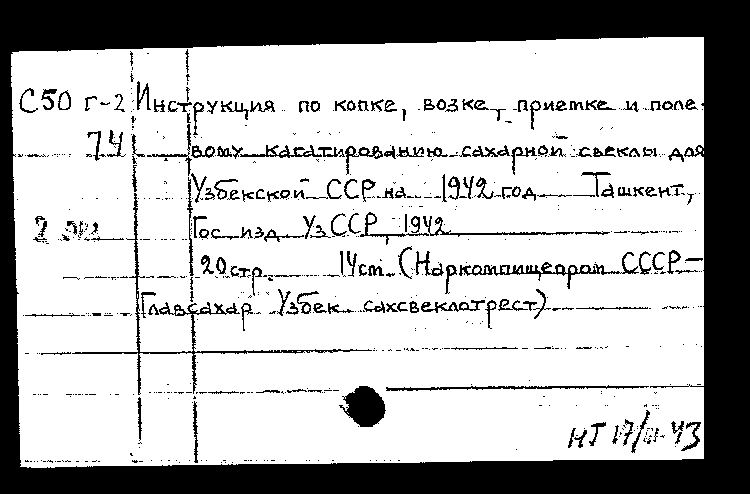 С50 г-2 Инструкция по копке, возке, приемке и поле-
74 вому кагатированию сахарной свеклы для
Узбекской ССР на 1942 год Ташкент,
2 экз Гос. изд. УзССР, 1942
20стр. 14см. (Наркомпищепром СССР-
Главсахар Узбек. сахсвеклотрест)
НТ 17/III-43